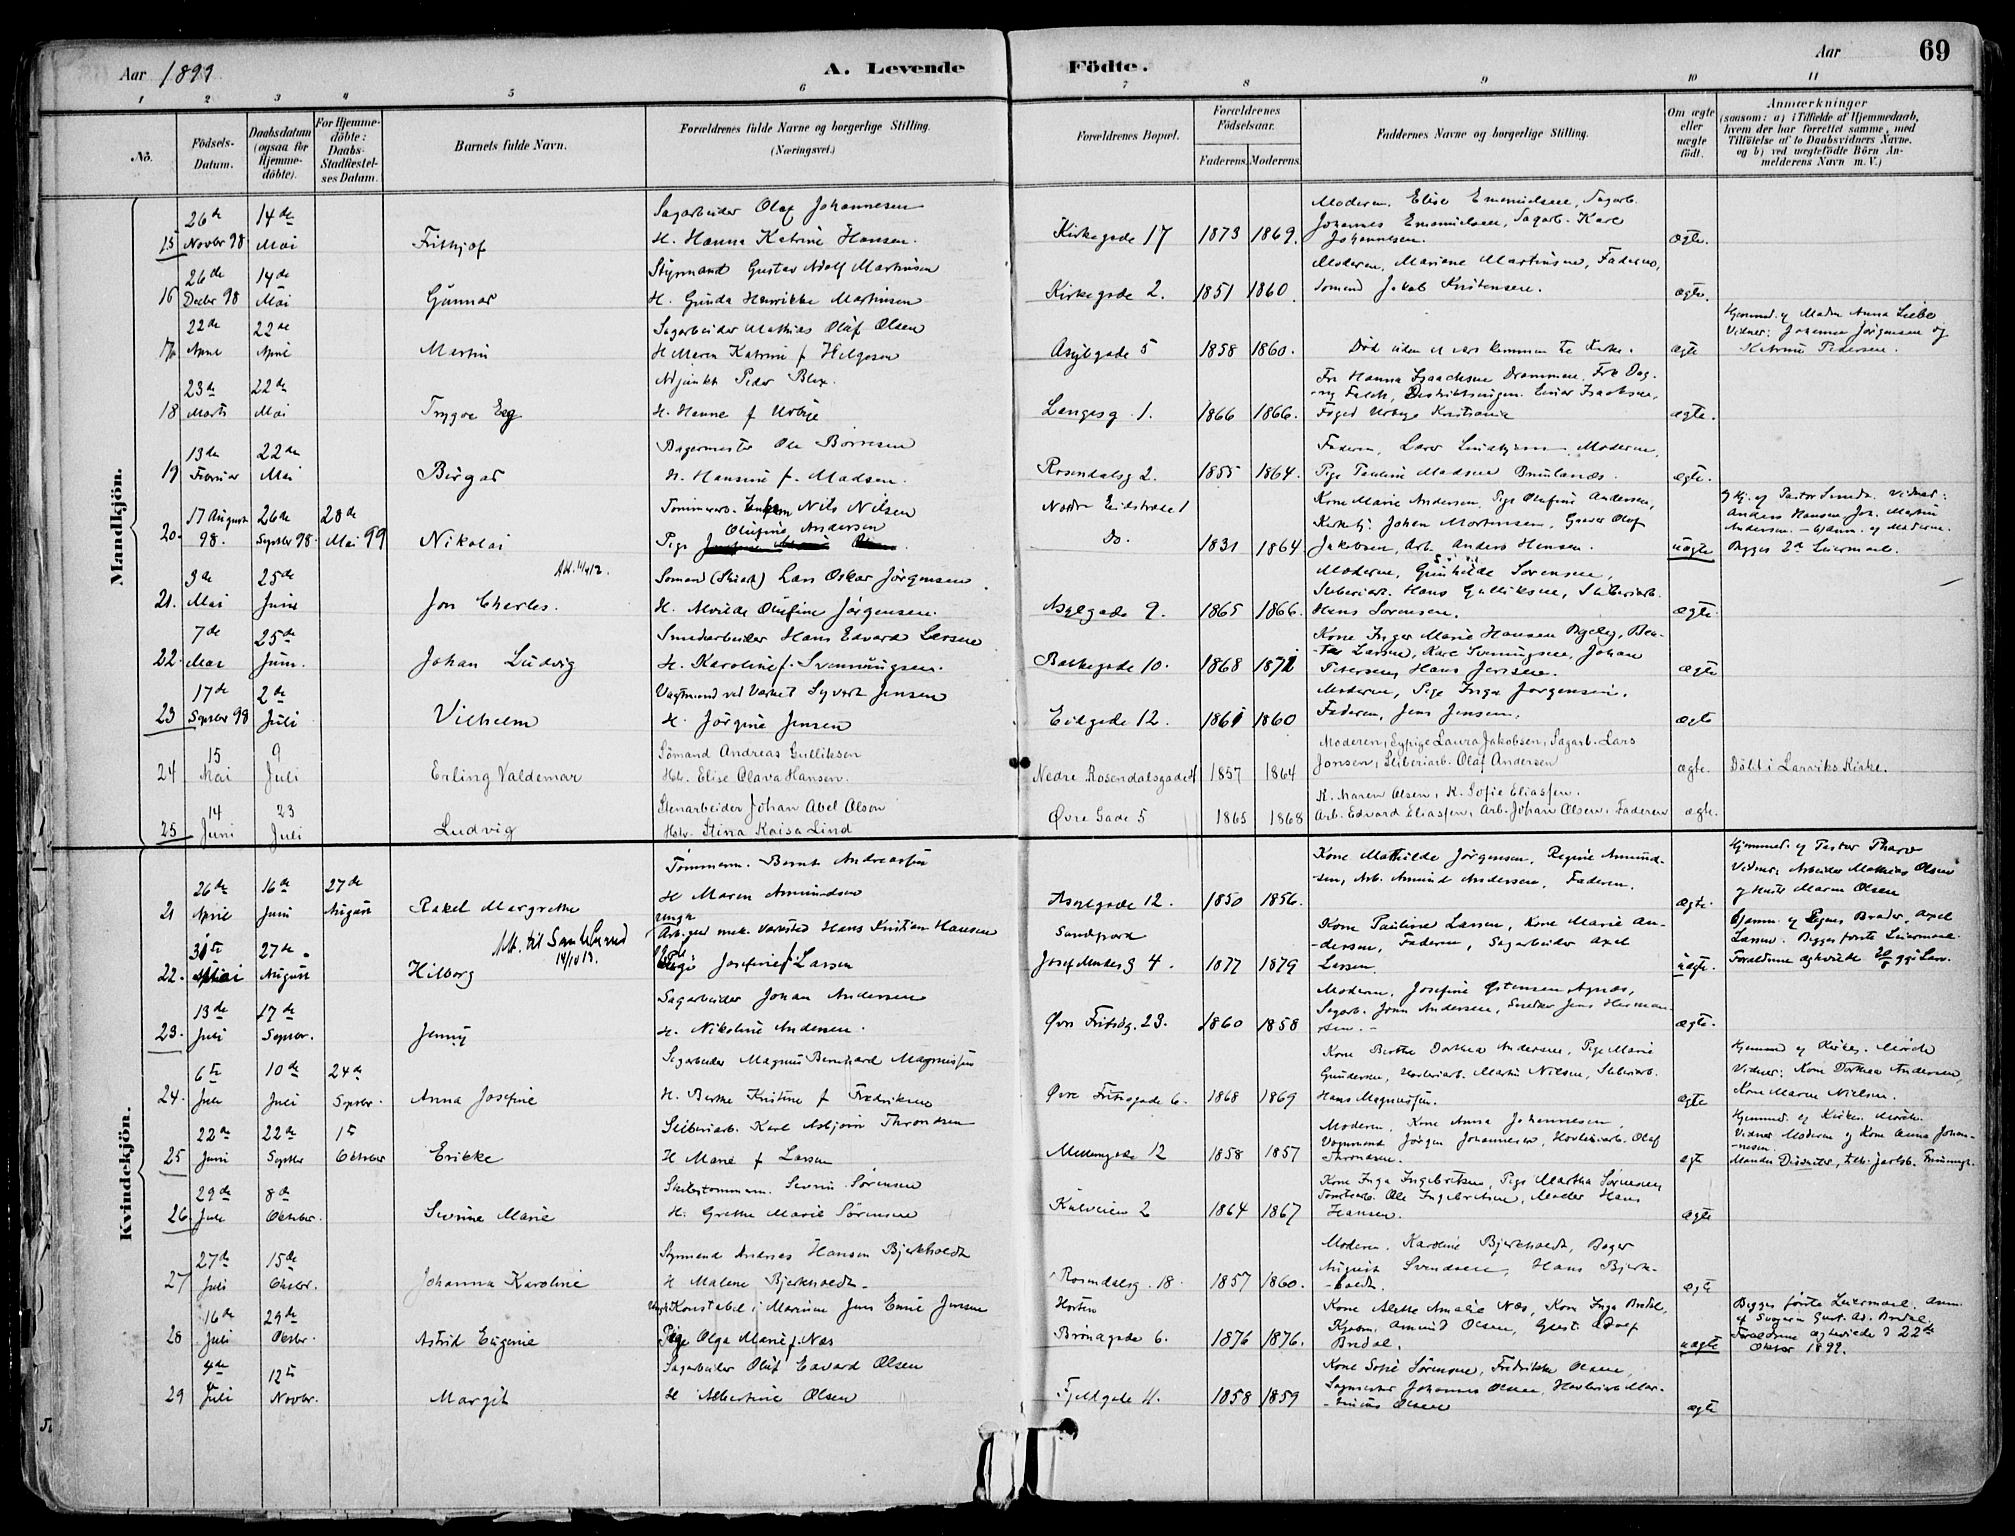 Aar 1899.
A. Levende
Födte.
Aar
69
1 2 3 4 5 6 7 8 9 10 11
No.
Födsels-Datum.
Daabsdatum (ogsaa for Hjemmedöbte).
For Hjemmedöbte: Daabs-Stadfestelses Datum.
Barnets fulde Navn.
Forældrenes fulde Navne og borgerlige Stilling. (Næringsvei.)
Forældrenes Bopæl.
Forældrenes Födselsaar.
Faderens. Moderens.
Faddernes Navne og borgerlige Stilling.
Om ægte eller uægte födt.
Anmærkninger
(saasom: a) i Tilfælde af Hjemmedaab, hvem der har forrettet samme, med Tilföielse af to Daabsvidners Navne, og b) ved uægtefödte Börn Anmelderens Navn m. V.)
Mandkjön.
15 26de Novbr 98 14de Mai Frithjof
Sagarbeider Olaf Johannesen
H. Hanna Katrine Hansen.
Kirkegade 17 1873 1869.
Moderen, Elise Emanuelsen, Sagarb.
Johannes Emanuelsen, Sagarb. Karl
Johannesen.
ægte.
16 26de Decbr 98 14de Mai Gunnar
Styrmand Gustav Adolf Martinsen
H. Gunda Henrikke Martinsen
Kirkegade 2. 1851 1860.
Moderen, Mariane Martinsen, Faderen,
Sömand Jakob Kristensen.
ægte.
17 22de April 22de April Martin
Sagarbeider Mathias Olaf Olsen
H Maren Katrine f Helgesen
Asylgade 5 1858 1860.
Död uden at være kommen til Kirke.
ægte
Hjemmed. af Madm Anna Liebe
Vidner: Johanna Jörgensen og
Katrine Pedersen.
18 23de Marts 22de Mai Trygve Eeg
Adjunkt Peder Blix.
H. Hanne f Urbye
Langesg. 1. 1866 1866.
Fru Hanna Isaachsen Drammen, Frk Dag-
ny Falch, Distriktsingen. Einar Isachsen,
Foged Urbye Kristiania
ægte.
19 13de Februar 22de Mai Birger
Bagermester Ole Börresen
H. Hansine f. Madsen.
Rosendalsg 2. 1855 1864.
Faderen, Lars Lindhjem, Moderen,
Pige Pauline Madsen Brunlanæs.
ægte.
20. 17 August 98. 26de Septbr 98. 28de Mai 99 Nikolai
Tömmerarb. Enkem Nils Nilsen
Pige Olufine Andersen
Nordre Eidstræde 1
Do. 1831 1864
Kone Marie Andersen, Pige Olufine Andersen,
Johan Mortensen, Olaf
Jakobsen, Arb. Anders Hansen.
uægte
Hj. af Pastor Vidner:
Anders Hansen, Joh. Martin
Andersen - Moderen.
Begges 2de Leiermaal.
21. 3de Mai 25de Juni Jon Charles.
Att. 11/4 12.
Sömand (Skibsk) Lars Oskar Jörgensen
H. Alvilde Olufine Jörgensen.
Asylgade 9. 1865 1866.
Moderen, Gunhilde Sörensen,
Sliberiarb. Hans Gulliksen, Sliberiarb.
Hans Sörensen.
ægte.
22. 7de Mai 25de Juni. Johan Ludvig
Smedarbeider Hans Edvard Larsen
H. Karoline f. Svenningsen.
Bakkegade 10. 1868 1871
Kone Inger Marie Hansen Byeley, Bea-
ta Larsen, Karl Svenningsen, Johan
Petersen, Hans Jensen.
ægte
23 17de Septbr 98 2de Juli Vilhelm
Vagtmand ved Værket Syvert Jensen
H. Jörgine Jensen
Eidgade 12. 1861 1860
Moderen, Pige Inga Jörgensen,
Faderen, Jens Jensen.
ægte
24 15 Mai 9 Juli Erling Valdemar
Sömand Andreas Gulliksen
Hstr. Elise Olava Hansen.
Nedre Rosendalsgade 4 1857 1864
Moderen, Syrige Laura Jakobsen, Sagarb. Lars
Jonsen, Sliberiarb. Olaf Andersen
ægte.
Döbt i Larviks Kirke.
25 14 Juni 23 Juli Ludvig
Stenarbeider Johan Abel Olson
Hstr. Stina Kaisa Lind
Øvre Gade 5 1865 1868
K. Maren Olsen, K. Sofie Eliassen,
Arb. Edvard Eliassen, Arb. Johan Olsen, Faderen
ægte.
Kvindekjön.
21 26de April 16de Juni 27de August Rakel Margrethe
Tömmerm. Bernt Andreassen
H Maren Amundsen
Asylgade 12. 1850 1856.
Kone Mathilde Jörgensen, Regine Amund-
sen, Arb. Amund Andersen, Faderen.
ægte.
Hjemmed. af Pastor Tharo
Vidner: Arbeider Mathias Olsen
og Hustr Maren Olsen
22. 31te Mai 27de August Hilborg
Att. til Sandesund 14/10 13.
Ungk Arb. ved mek. Værksted Hans Kristian Hansen
Pige Josefine f Larsen
Sandpark
Josef Monkesg 4. 1877 1879
Kone Pauline Larsen, Kone Marie An-
dersen, Faderen, Sagarbeider Axel
Larsen.
uægte.
Anm. af Pigens Broder, Axel
Larsen. Begges förste Leiermaal.
Forældrene ægteviede 20/8 99 i Larv.
23. 13de Juli 17de Septbr. Jenny
Sagarbeider Johan Andersen
H. Nikoline Andersen.
Øvre Fritsög. 23. 1860 1858
Moderen, Josefine Østensen Agnæs,
Sagarb. John Andersen, Snedker Jens Herman-
sen.
ægte.
24. 6te Juli 10de Juli 24de Septbr. Anna Josefine
Sagarbeider Magnus Bernhard Magnussen
H. Berthe Kristine f Fredriksen
Øvre Fritsögade 6. 1868 1869
Kone Berthe Dorthea Andersen, Pige Marie
Gundersen, Høvleriarb. Martin Nilsen, Sliberiarb.
Hans Magnussen.
ægte
Hjemmed af Kirkes. Mörch
Vidner: Kone Dorthea Andersen,
Kone Maren Nielsen.
25 22de Juni 22de Septbr 1te Oktober Erikke
Sliberiarb. Karl Asbjörn Throndsen
H Marie f Larsen
Mellemgade 12 1858 1857
Moderen, Kone Anna Johannesen,
Vognmand Jörgen Johannesen, Høvleriarb. Olaf
Throndsen.
ægte
Hjemmed. af Kirkes. Mörch.
Vidner Moderen og Kone Anna Johan-
nesen.
26. 29de Juli 8de Oktober. Severine Marie
Skibstömmerm. Severin Sörensen
H. Grethe Marie Sörensen
Kulveien 2 1864 1867
Kone Inga Ingebretsen, Pige Martha Sörensen,
Ole Ingebretsen, Hans
Hansen.
ægte
27 27de Juli 15de Oktobr. Johanna Karoline
Styrmand Andreas Hansen Bjerkholdt
H Malene Bjerkholdt
Rosendalsg. 18. 1857 1860.
Moderen, Karoline Bjerkholdt, Bager
August Svendsen, Hans Bjerk-
holdt.
ægte
28 16de Juli 29de Oktbr. Astrid Eugenie
Ungk. Konstabel i Marinen Jens Emil Jensen
Pige Olga Marie f. Næs
Horten
Brönegade 6. 1876 1876.
Kone Alette Amalie Næs, Kone Inga Bredal,
Kjöbm. Amund Olsen, Gust. Adolf
Bredal.
uægte
Begges förste Leiermaal. Anm.
af Svogeren Gust. Ad. Bredal.
Forældrene ægteviede d 22de
Oktbr 1899.
29 4de Juli 12te Novbr. Margit
Sagarbeider Oluf Edvard Olsen
H Albertine Olsen
Fjeldgade 4. 1858 1859
Kone Sofie Sörensen, Fredrikke Olsen,
Sagmester Johannes Olsen, Høvleriarb. Mar-
tinius Olsen
ægte